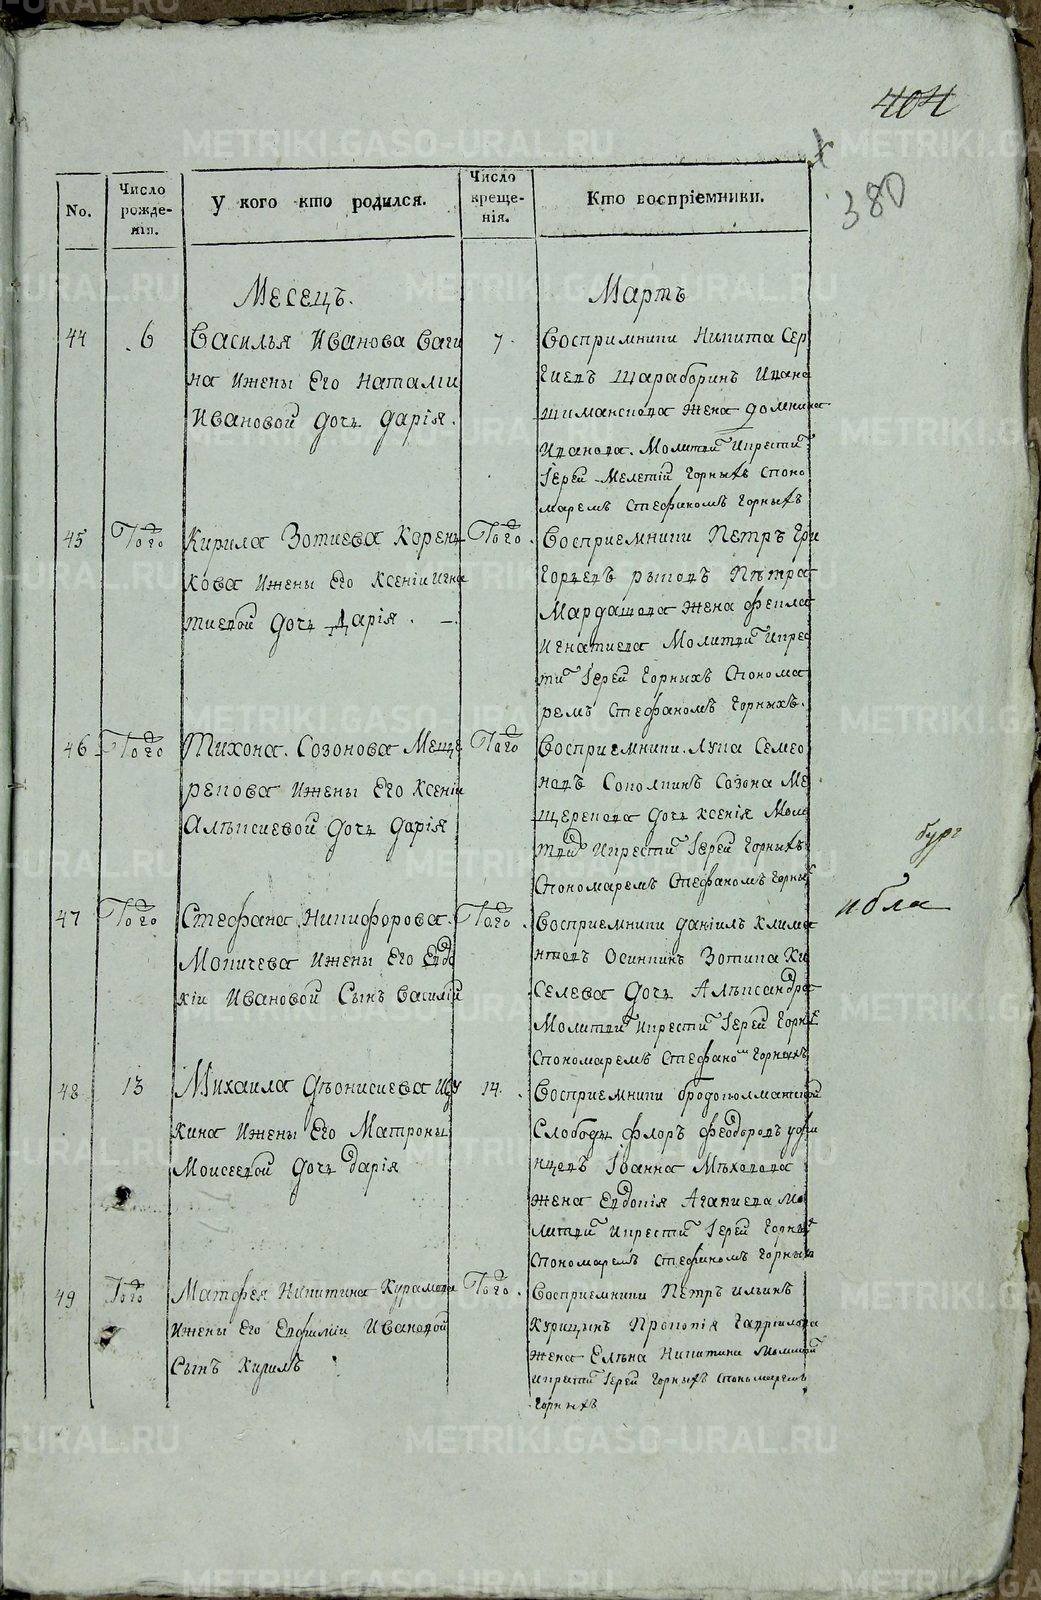 404
380
No.
Число рожденiя.
У кого кто родился.
Число крещенiя.
Кто воспрiемники.
Месецъ.
Мартъ
44
6
Василья Иванова Ваги
на ижены Его Наталiи
Ивановой дочь дарiя.
7.
Воспримники Никита Сер
гиевъ Шараборинъ Ивана
Шиманскова жена домника
Иванова. Молитвиٛ Икрести
Iерей Мелетiй Горныхъ споно
маремъ Стефаномъ Горныхъ
45
Того
Кирила Зотиева Корень
кова ижены Его Ксенiи Игна
тиевой дочь Дарiя. —.
Того.
Восприемники Петръ Гри
горьевъ рыковъ Петра
Мардашева жена Фекла
Игнатиева Молитви Икрес
ти Iерей Горныхъ Спонома
ремъ Стефаномъ Горныхъ.
46
Того
Тихона Созонова Меще
рекова ижены Его Ксенiи
Алексиевой дочь дарiя
Того
Восприемники Лука Семео
новъ Соколкинъ Созона Ме
щерекова дочь Ксенiя Моли
тви Икрести Iерей Горныхъ
Спономаремъ Стефаномъ Горных
47
Того
Стефана Никифорова
Мокичева ижены Его Евдо
кiи Ивановой Сынъ Василiй
Того.
Восприемники данiилъ Клима
нтовъ Осинкинъ Зотика Ки
селева дочь Александра
Молитви Икрести Iерей Горных
Спономаремъ Стефаном Горныхъ
бург
ибла
48
13
Михаила Дiонисиева
кина ижены Его Матроны
Моисеевой дочь дарiя
14.
Восприемники бродоколматской
Слободы Флоръ Феодоровъ
Iоанна Мехолова
жена Евдокiя Агапиева Мо
литви Икрести Iерей Горных
Спономаремъ Стефаномъ Горных
49
Того
Матфея Никитина Курамова
ижены Его Евфимiи Ивановой
Сынъ Кирилъ
Того.
Восприемники Петръ Ильинъ
Курицынъ Прокопiя Гаврилова
жена Елена Никитина Молитви
икрести Iерей Горныхъ Спономаремъ
Горныхъ
METRIKI.GASO-URAL.RU